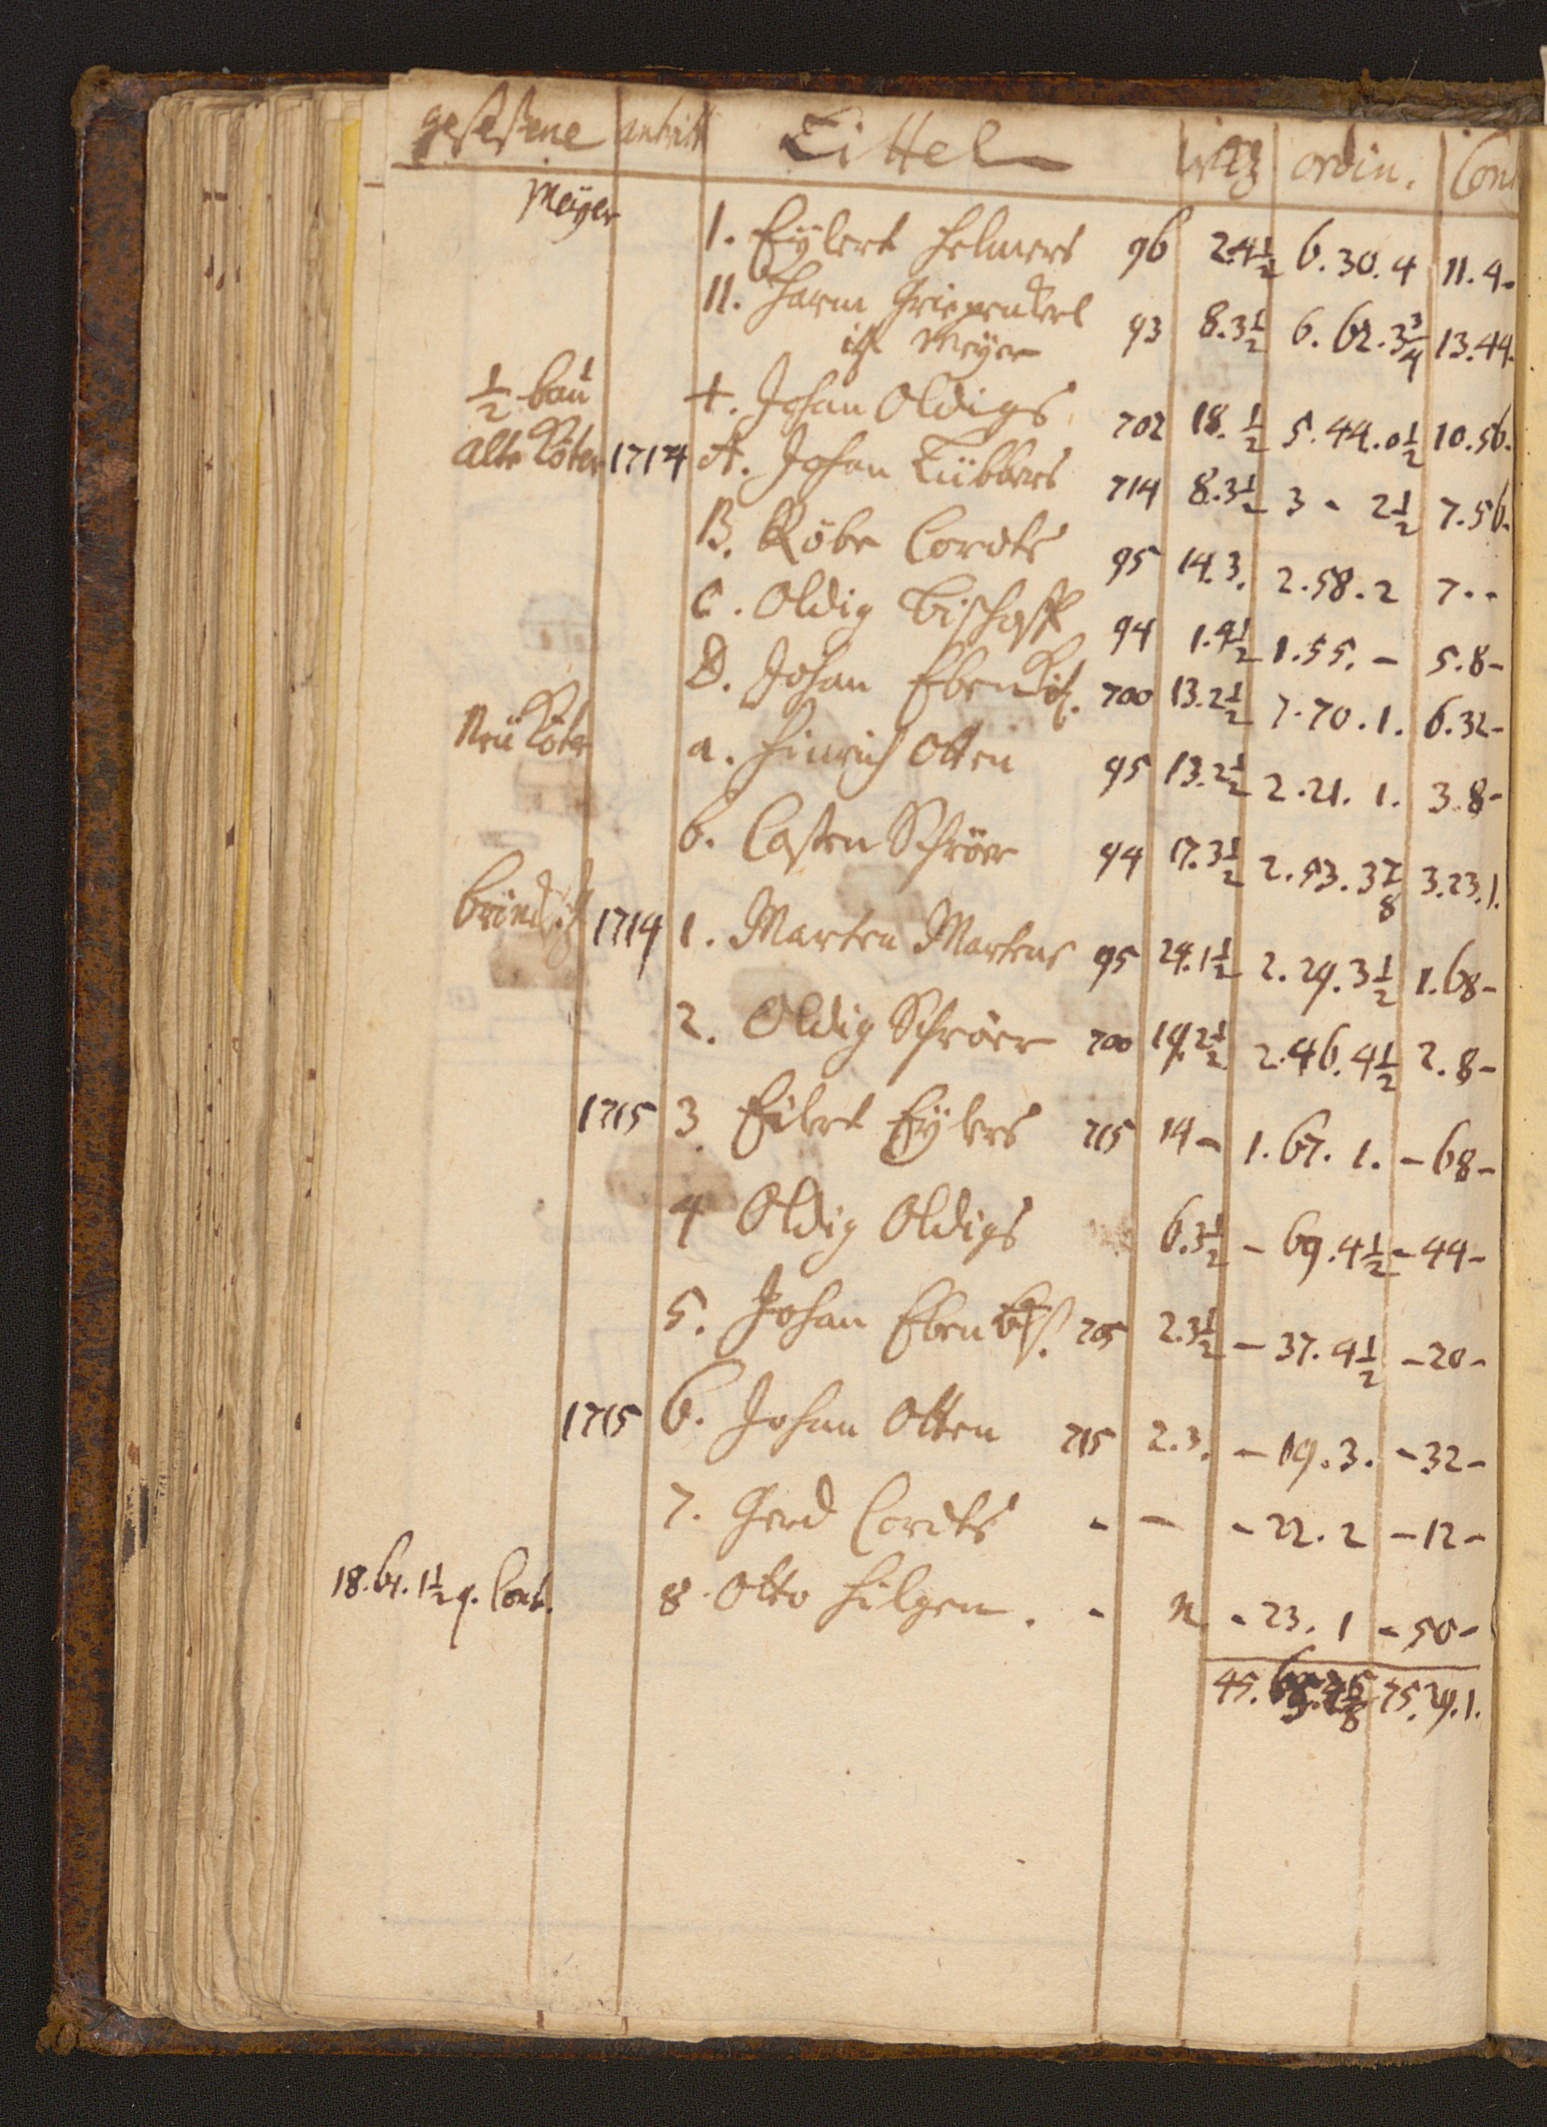 geseßene antritt Eittel ordin. Con
Meÿer
1. Eÿlert Helmers 96 24½ 6.30.4 11.4-
11. Harm Griepenkerl
ist Meÿer 93 8.3½ 6.62.3¾ 13.44.
½ bau t. Johan Oldigs 702 18.½ 5.44.0½ 10.56.
alte Köter 1714 A. Johan Lübbers 714 8.3½ 3 - 2½ 7.56.
B. Röbe Cordts 95 14.3. 2.58.2 7 - -
C. Oldig Bischoff 94 1.4½ 1.55. - 5.8-
D. Johan Eben 700 13.2½ 7.70.1. 6.32-
Neü Köter a. Hinrich Otten 95 13.2½ 2.21.1. 3.8-
b. Casten Schröer 94 17.3½ 2.53.3⅞ 3.23.1.
brinds. 1714 1. Marten Martens 95 24.1½ 2.29.3½ 1.68-
2. Oldig Schröer 700 19.2½ 2.46.4½ 2.8-
1715 3 Eilert Eÿlers 715 14 - 1.67.1. - 68 -
4 Oldig Oldigs 6.3½ - 69.4½ - 44 -
5. Johan Eben 705 2.3½ - 37.4½ - 20 -
1715 6. Johan Otten 715 2.3. - 19.3. - 32 -
7. Gerd Cordts - - - 22.2 - 12 -
18.61.1½ q. Cont. 8. Otto Hilgen. - n. - 23.1 - 50 -
45. 75.29.1.